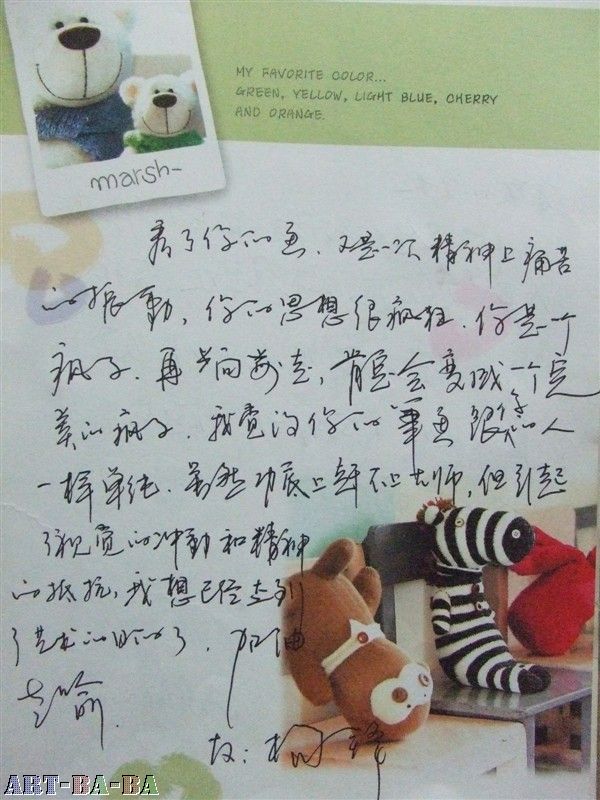 MY FAVORITE COLOR...
GREEN, YELLOW, LIGHT BLUE, CHERRY
AND ORANGE.
marsh~
看了你的画，又是一次精神上痛苦
的振動，你的思想很疯狂．你是一个
疯子．再发向前走，肯定会变成一个完
美的疯子．我觉得你的筆画跟你的人
一样单纯．虽然功底上算不上大师，但引起
了视觉的冲動和精神
的抵抗，我想已经达到
了艺术的目的了．加油
ART-BA-BA